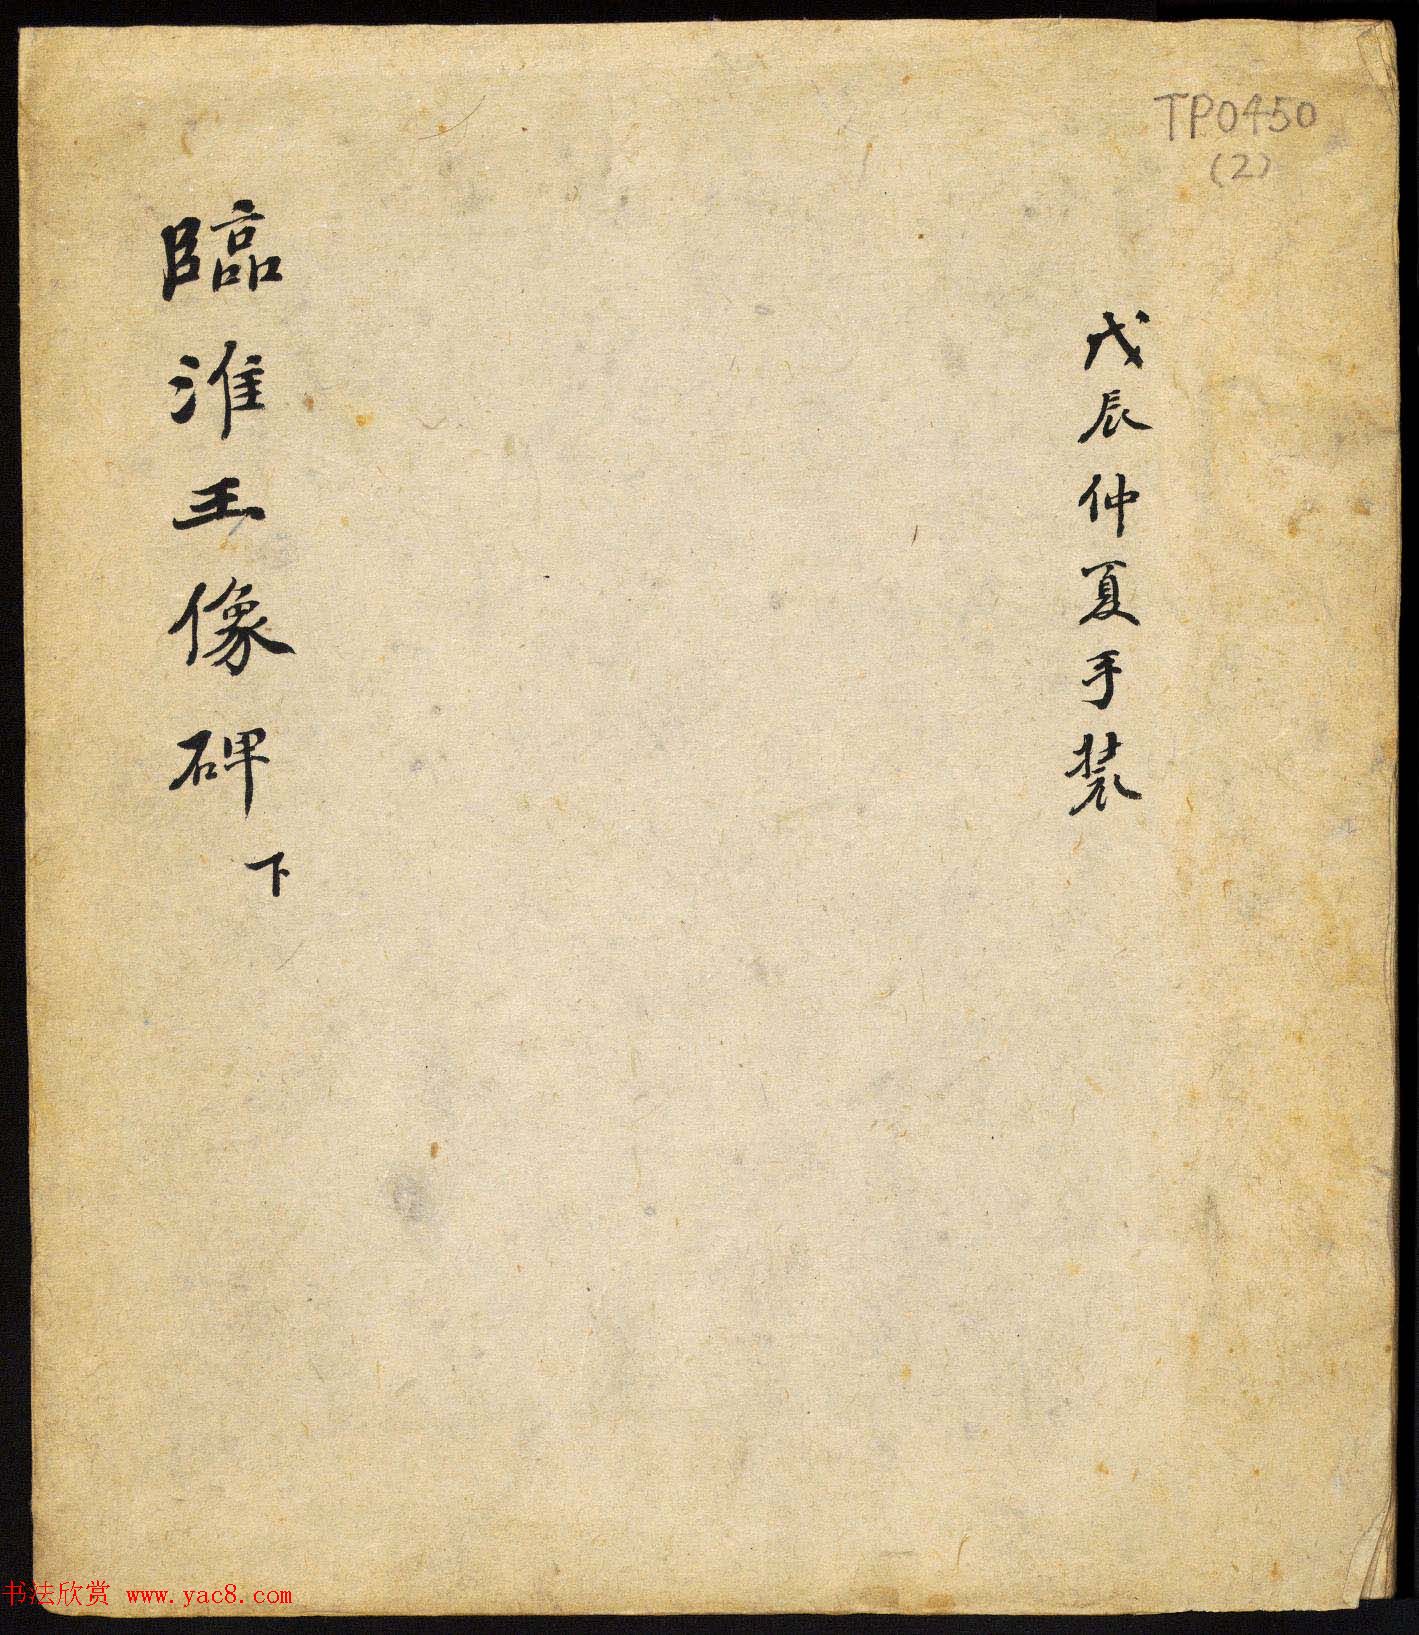 TP0450
(2)
戊辰仲夏手装
臨淮王像碑 下
书法欣赏 www.yac8.com